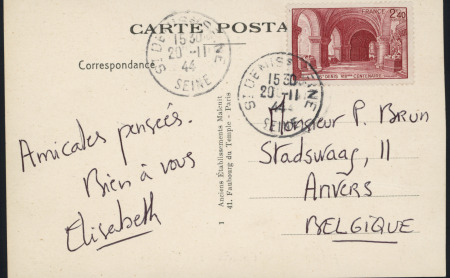 CARTE POSTA
Correspondance
ST DENIS S SEINE
1530
20 -11
44
SEINE
FRANCE
2f40
ST DENIS VIIIme CENTENAIRE
ST DENIS S SEINE
1530
20 -11
44
SEINE
Amicales pensées.
Bien à vous
Elisabeth
1 Anciens Établissements Malcuit
41, Faubourg du Temple - Paris
Monsieur P. Brun
Stadswaag, 11
Anvers
BELGIQUE